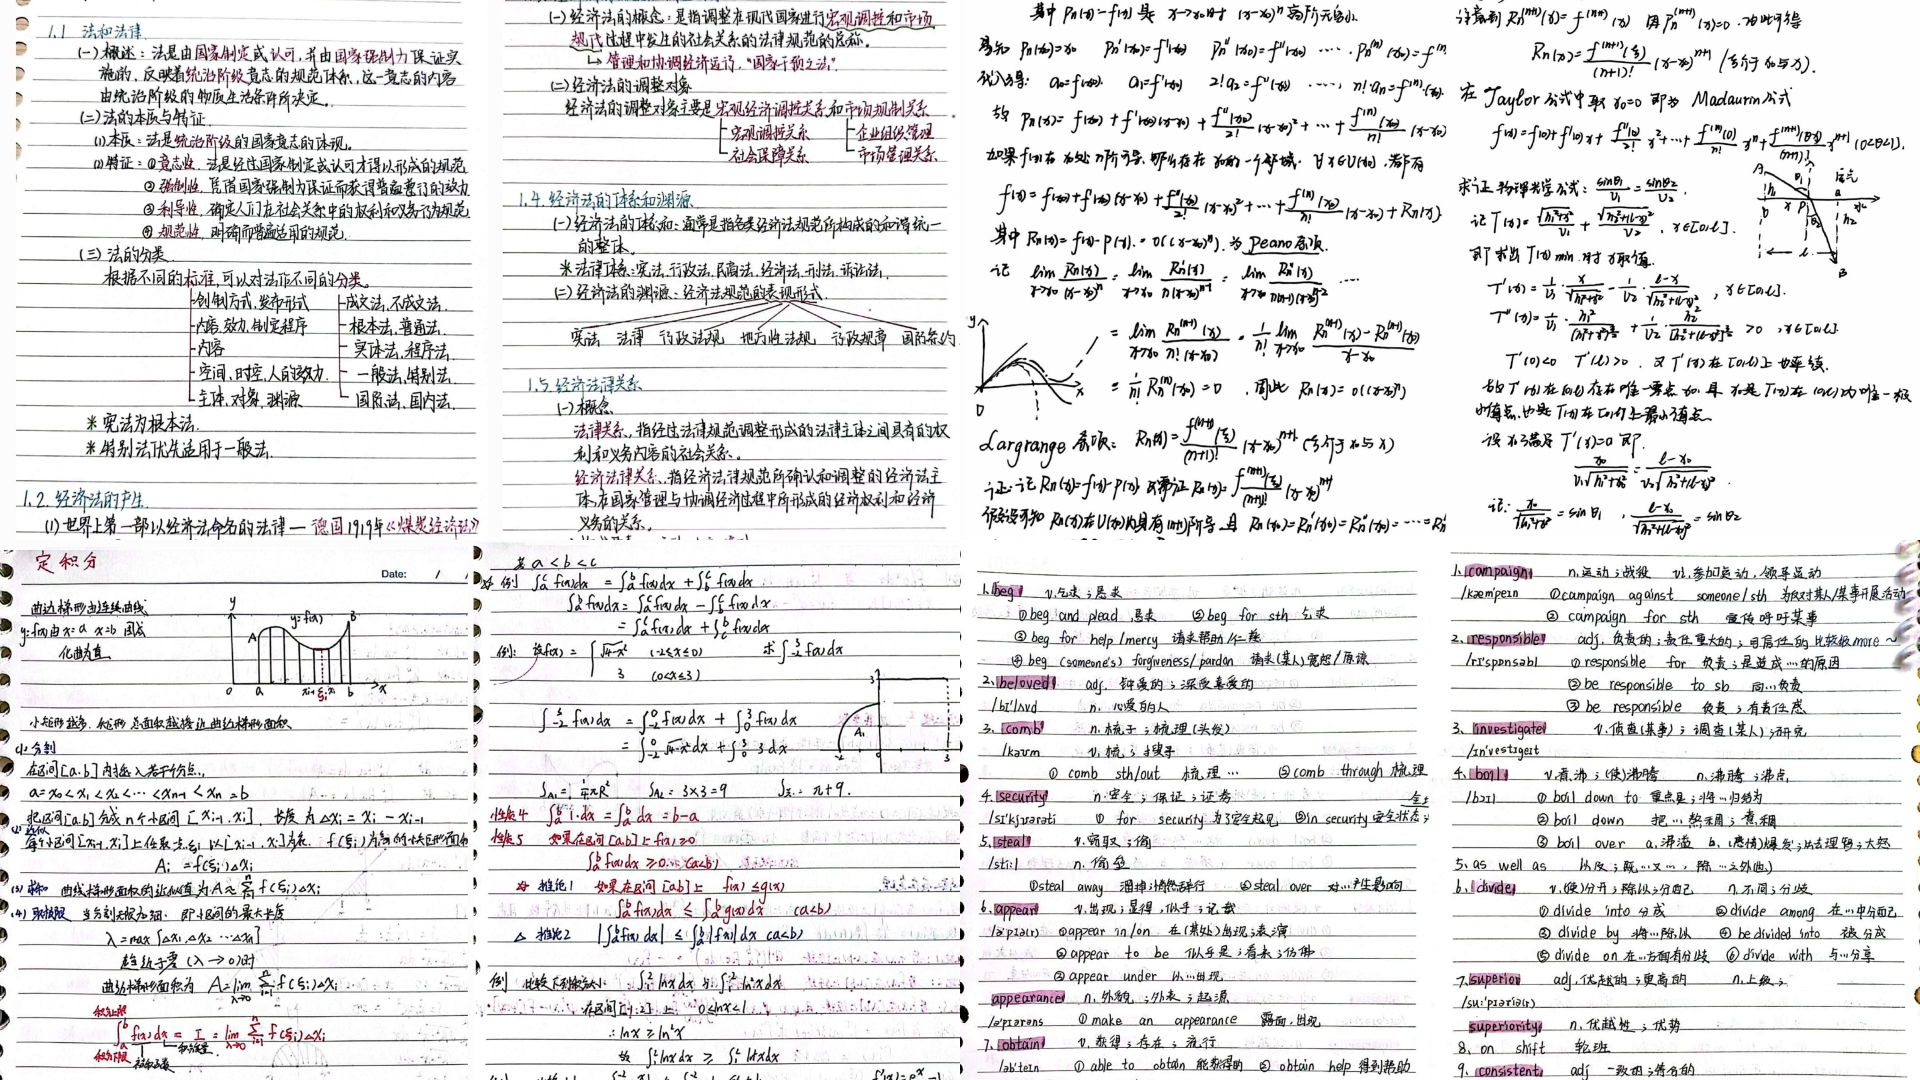 1.1 法和法律
(一) 概述：法是由国家制定或认可，并由国家强制力保证实
施的，反映着统治阶级意志的规范体系，这一意志的内容
由统治阶级的物质生活条件所决定。
(二) 法的本质与特征
(1) 本质：法是统治阶级的国家意志的体现。
(2) 特征：①意志性，法是经过国家制定或认可才得以形成的规范
②强制性，凭借国家强制力保证而获得普遍遵行的效力
③利导性，确定人们在社会关系中的权利和义务行为规范
④规范性，明确而普遍适用的规范.
(三) 法的分类
根据不同的标准，可以对法作不同的分类。
创制方式、发布形式 成文法、不成文法.
内容、效力、制定程序 根本法、普通法.
内容 实体法、程序法
空间、时空、人的效力. 一般法、特别法.
主体、对象、渊源 国际法、国内法.
* 宪法为根本法.
* 特别法优先适用于一般法.
1.2. 经济法的产生
(1) 世界上第一部以经济法命名的法律 — 德国1919年《煤炭经济法》
(一) 经济法的概念：是指调整在现代国家进行宏观调控和市场
规制过程中发生的社会关系的法律规范的总称。
↳ 管理和协调经济运行，"国家干预之法".
(二) 经济法的调整对象
经济法的调整对象主要是宏观经济调控关系和市场规制关系
宏观调控关系 企业组织管理
社会保障关系 市场管理关系
1.4. 经济法的体系和渊源
(一) 经济法的体系：通常是指各类经济法规范所构成的和谐统一
的整体.
* 法律体系：宪法、行政法、民商法、经济法、刑法、诉讼法.
(二) 经济法的渊源：经济法规范的表现形式.
宪法 法律 行政法规 地方性法规 行政规章 国际条约
1.5. 经济法律关系
(一) 概念
法律关系，指经过法律规范调整形成的法律主体之间具有的权
利和义务内容的社会关系。
经济法律关系，指经济法律规范所确认和调整的经济法主
体，在国家管理与协调经济过程中所形成的经济权利和经济
义务的关系。
其中 Pn(x)-f(x) 是 x→x0时 (x-x0)^n 高阶无穷小
Pn'(x0)=f'(x0) Pn''(x0)=f''(x0) ····· Pn^(n)(x0)=f^(n)
代入得: a0=f(x0). a1=f'(x0) 2!a2=f''(x0) ····, n!an=f^(n)(x0)
故 Pn(x)= f(x0)+f'(x0)(x-x0)+f''(x0)/2!(x-x0)²+···+f^(n)(x0)/n!(x-x0)
f(x)=f(x0)+f'(x0)(x-x0)+f''(x0)/2!(x-x0)²+···+f^(n)(x0)/n!(x-x0)+Rn(x)
其中 Rn(x)=f(x)-p(x).=o((x-x0)^n). 为 peano 余项.
记 lim x→x0 Rn(x)/(x-x0)^n = lim x→x0 Rn'(x)/n(x-x0)^(n-1) = lim x→x0 Rn''(x)/n(n-1)(x-x0)^(n-2) ···
= lim x→x0 Rn^(n-1)(x)/n!(x-x0) = 1/n! lim x→x0 Rn^(n-1)(x)-Rn^(n-1)(x0)/x-x0
= 1/n! Rn^(n)(x0)=0 . 因此 Rn(x)=o((x-x0)^n)
y
0
x
Largrange 余项: Rn(x)=f^(n+1)(ξ)/(n+1)! (x-x0)^(n+1) (ξ介于x0与x)
证: 记 Rn(x)=f(x)-p(x) 只需证 Rn(x)=f^(n+1)(ξ)/(n+1)! (x-x0)^(n+1)
注意到 Rn^(n+1)(x)=f^(n+1)(x) 因 Pn^(n+1)(x)=0 .
Rn(x)=f^(n+1)(ξ)/(n+1)! (x-x0)^(n+1) (ξ介于x0与x).
在 Taylor 公式中取 x0=0 即为 Madaurin公式
f(x)=f(0)+f'(0)x+f''(0)/2! x²+···+f^(n)(0)/n! x^n+f^(n+1)(θx)/(n+1)! x^(n+1) (0<θ<1).
求证 物理光学公式: sinθ1/V1=sinθ2/V2.
记 T(x)=√(h1²+x²)/V1+√(h2²+(l-x)²)/V2 , x∈[0,l].
即求出 T(x) min 时 x取值.
T'(x)=1/V1·x/√(h1²+x²)-1/V2·(l-x)/√(h2²+(l-x)²), x∈[0,l].
T''(x)=1/V1·h1²/(h1²+x²)^(3/2)+1/V2·h2²/[h2²+(l-x)²]^(3/2) >0 , x∈[0,l]
T'(0)<0 T'(l)>0 . 又 T'(x)在[0,l]上也连续.
设 x0满足 T'(x)=0 即.
x0/V1√(h1²+x0²)=(l-x0)/V2√(h2²+(l-x0)²)
记: x0/√(h1²+x0²)=sinθ1 , (l-x0)/√(h2²+(l-x0)²)=sinθ2
定积分
Date: /
曲边梯形由连续曲线
y=f(x)由x=a x=b 围成
化曲为直
y y=f(x) A B
0 a xi-1 ξi xi b x
小矩形越多，矩形总面积越接近曲边梯形面积
(1) 分割
在区间[a.b]内插入若干分点,
a=x0<x1<x2<···<xn-1<xn=b
把区间[a.b]分成n个小区间[xi-1,xi], 长度为Δxi=xi-xi-1
(2) 近似
Ai =f(ξi)Δxi
(3) 求和 曲线梯形面积的近似值为A≈Σf(ξi)Δxi
(4) 取极限 当分割无限加细. 即小区间的最大长度
λ=max{Δx1,Δx2 ···Δxn}
趋近于零(λ→0)时
曲边梯形面积为 A=lim λ→0 Σ f(ξi)Δxi
积分上限
∫ₐᵇ f(x)dx = I = lim λ→0 Σ f(ξi)Δxi
积分下限 积分变量
被积函数
若 a<b<c
例 ∫ₐᶜf(x)dx =∫ₐᵇf(x)dx+∫ᵇᶜf(x)dx
∫ₐᵇf(x)dx=∫ₐᶜf(x)dx-∫ᵇᶜf(x)dx
=∫ₐᶜf(x)dx+∫꜀ᵇf(x)dx
例: 设f(x)= √(4-x²) (-2≤x≤0) 求∫₋₂³f(x)dx
3 (0<x≤3)
∫₋₂³f(x)dx =∫₋₂⁰f(x)dx +∫₀³f(x)dx
=∫₋₂⁰√(4-x²)dx+∫₀³3dx
SA1=1/4πR² SA2=3×3=9 S总=π+9.
3 A1 -2 3
性质4 ∫ₐᵇ1·dx=∫ₐᵇdx=b-a
性质5 如果在区间[a,b]上f(x)≥0
∫ₐᵇf(x)dx≥0. (a<b)
推论1 如果在区间[a,b]上 f(x)≤g(x)
∫ₐᵇf(x)dx ≤∫ₐᵇg(x)dx (a<b)
△ 推论2 |∫ₐᵇf(x)dx|≤∫ₐᵇ|f(x)|dx (a<b)
例 比较下列积分大小: ∫₁²lnxdx与∫₁²ln²xdx
在区间[1,2]上 0≤lnx<1
∴lnx≥ln²x
故 ∫₁²lnxdx ≥ ∫₁²ln²xdx
1. beg v.乞求；恳求
①beg and plead 恳求 ②beg for sth 乞求
③beg for help/mercy 请求帮助/仁慈
④beg (someone's) forgiveness/pardon 请求(某人)宽恕/原谅
2. beloved adj. 钟爱的；深受喜爱的
/bɪ'lʌvd n. 心爱的人
3. comb n.梳子；梳理(头发)
/kəʊm v.梳；搜寻
① comb sth/out 梳理… ②comb through 梳理
4. security n.安全；保证；证券
/sɪ'kjʊərəti ① for security 为了安全起见 ②in security 安全状态
5. steal v.窃取；偷
/sti:l n.偷垒
①steal away 溜掉；悄然离行 ②steal over 对…产生影响
6. appear v.出现；显得，似乎；记载
/ə'pɪə(r) ①appear in/on 在(某处)出现；表演
②appear to be 似乎是；看来；仿佛
③appear under 以…出现
appearance n.外貌；外表；起源
/ə'pɪərəns ①make an appearance 露面，出现
7. obtain v.获得；存在；流行
/əb'teɪn ①able to obtain 能获得的 ②obtain help 得到帮助
1. campaign n.运动；战役 vi.参加运动，领导运动
/kæm'peɪn ①campaign against someone/sth 为反对某人/某事开展活动
② campaign for sth 宣传呼吁某事
2. responsible adj.负责的；责任重大的；可信任的 比较级more~
/rɪ'spɒnsəbl ①responsible for 负责；是造成…的原因
②be responsible to sb 向…负责
③be responsible 负责；有责任感
3. investigate v.侦查(某事)；调查(某人)；研究
/ɪn'vestɪgeɪt
4. boil v.煮沸；(使)沸腾 n.沸腾；沸点,
/bɔɪl ①boil down to 重点是；将…归结为
②boil down 把…熬稠；煮稠
③boil over a.沸溢 b.(感情)爆发；
5. as well as 以及；既…又…，除…之外(也)
6. divide v.(使)分开；除以；分配 n.不同；分歧
①divide into 分成 ②divide among 在…中分配
③divide by 将…除以 ④be divided into 被分成
⑤divide on 在…方面有分歧 ⑥divide with 与…分享
7. superior adj.优越的；更高的 n.上级；
/su:'pɪəriə(r)
superiority n.优越性；优势
8. on shift 轮班
9. consistent adj 一致的；